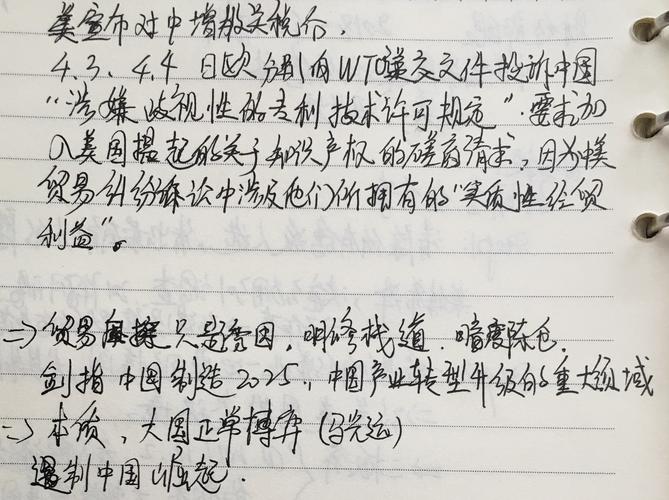 美宣布对中增加关税后,
4.3、4.4 日欧分别向WTO递交文件投诉中国
“涉嫌歧视性的专利技术许可规定”.要求加
入美国提起的关于知识产权的磋商请求,因为中美
贸易纠纷辩论中涉及他们所拥有的“实质性经贸
利益”。
=> 贸易摩擦只是诱因,明修栈道.暗度陈仓.
剑指中国制造2025,中国产业转型升级的重大领域
=> 本质,大国正常博弈(马光远)
遏制中国崛起.